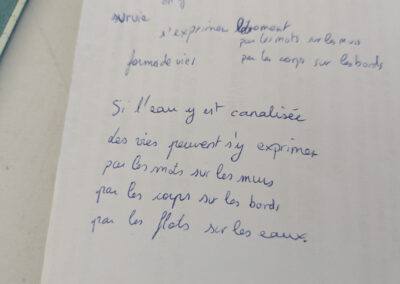 on y
survie
s'exprimer librement
par les mots sur les murs
formes de vies par les corps sur les bords
Si l'eau y est canalisée
des vies peuvent s'y exprimer
par les mots sur les murs
par les corps sur les bords
par les flots sur les eaux.